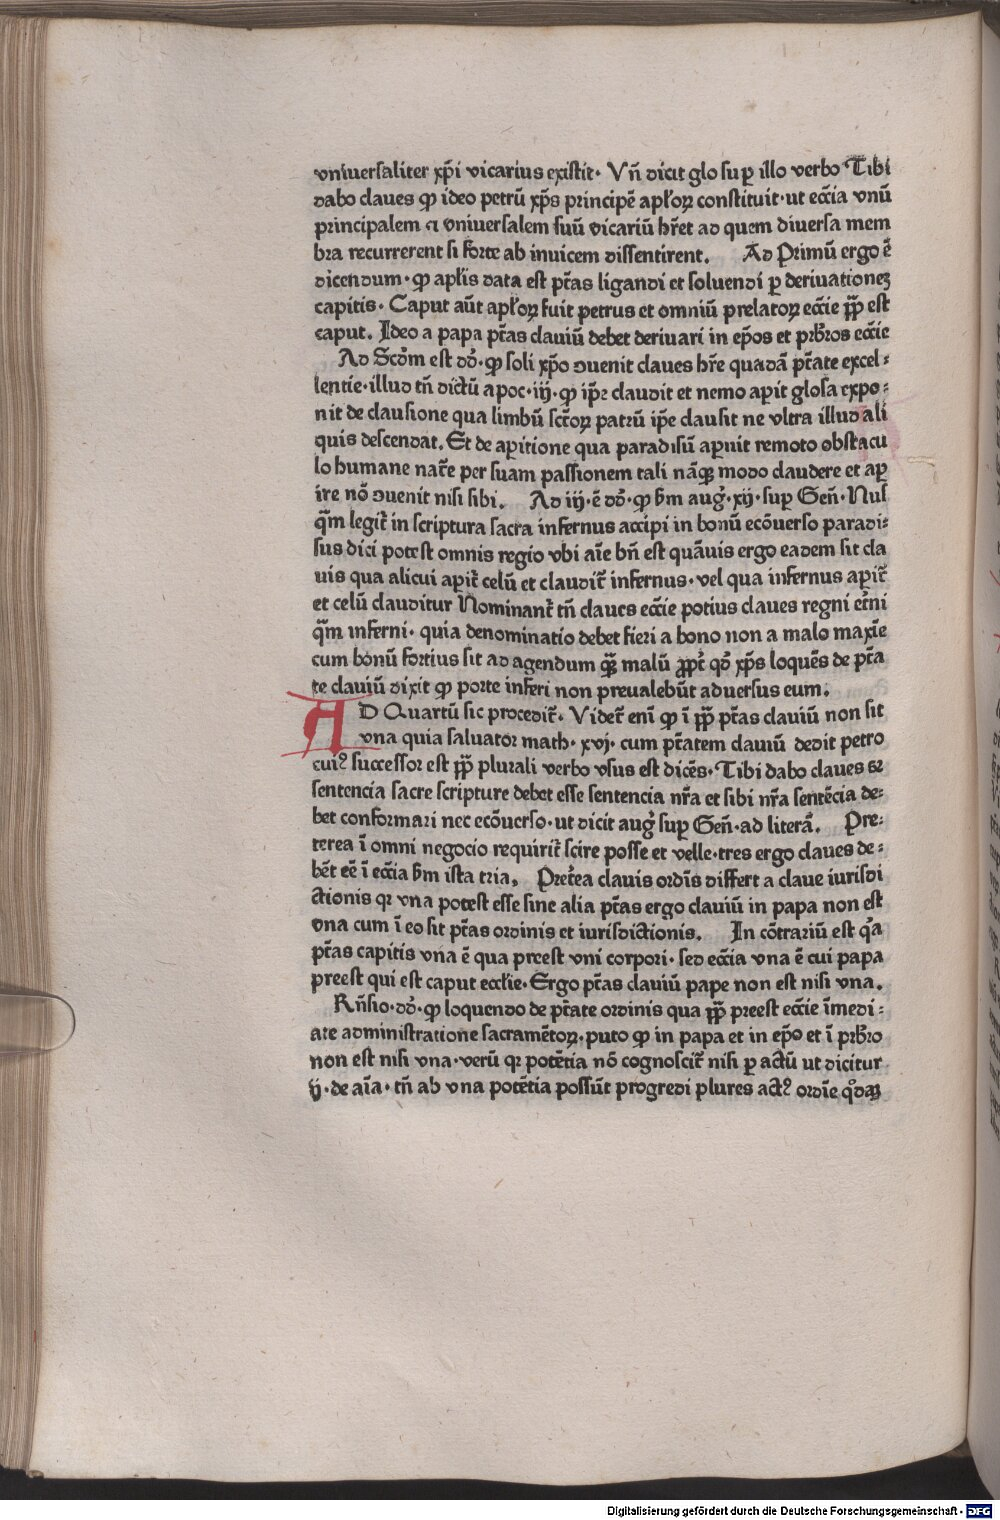 vniuersaliter xp̄i vicarius existit· Vn̄ dicit glo sup illo verbo Tibi
dabo claues ꝙ ideo petrū xp̄s principē apl̄oꝝ constituit·ut ecc̄ia vnū
principalem ⁊ vniuersalem suū vicariū hr̄et ad quem diuersa mem
bra recurrerent si forte ab inuicem dissentirent. Ad Primū ergo ē
dicendum·ꝙ apl̄is data est ptās ligandi et soluendi ꝑ deriuationeꝫ
capitis· Caput aūt apl̄oꝝ fuit petrus et omniū prelatoꝝ ecc̄ie pp̄ est
caput. Ideo a papa ptās clauiū debet deriuari in ep̄os et prb̄ros ecc̄ie
Ad Scd̄m est dd̄·ꝙ soli xp̄o ɔuenit claues hr̄e quadā ptāte excel⸗
lentie·illud tn̄ dictū apoc·iij·ꝙ ip̄e claudit et nemo aꝑit glosa expo⸗
nit de clausione qua limbū sctōꝝ patrū ip̄e clausit ne vltra illud ali
quis descendat. Et de aꝑitione qua paradisū aꝑuit remoto obstacu
lo humane natr̄e per suam passionem tali nāqꝫ modo claudere et aꝑ
ire nō ɔuenit nisi sibi. Ad iij·ē dd̄·ꝙ sm̄ aug᷒·xij·sup Gen̄·Nus
qm̄ legit᷑ in scriptura sacra infernus accipi in bonū ecōuerso paradi⸗
sus dici potest omnis regio vbi aīe bn̄ est quāuis ergo eadem sit cla
uis qua alicui aꝑit᷑ celū et claudit᷑ infernus·vel qua infernus aꝑit᷑
et celū clauditur Nominant᷑ tn̄ claues ecc̄ie potius claues regni et᷑ni
qm̄ inferni·quia denominatio debet fieri a bono non a malo maxīe
cum bonū fortius sit ad agendum qm̄ malū ꝓpt᷑ qd̄ xp̄s loquēs de ptā
te clauiū dixit ꝙ porte inferi non preualebūt aduersus eum.
AD Quartū sic procedit᷑· Videt᷑ enī ꝙ ī pp̄ ptās clauiū non sit
vna quia saluator math·xvj·cum ptātem clauiū dedit petro
cuiꝰ successor est pp̄ plurali verbo vsus est dicēs·Tibi dabo claues sꝫ
sentencia sacre scripture debet esse sentencia nr̄a et sibi nr̄a sentēcia de⸗
bet conformari nec ecōuerso·ut dicit aug᷒ sup Gen̄·ad literā. Pre⸗
terea ī omni negocio requirit᷑ scire posse et velle·tres ergo claues de⸗
bēt eē ī ecc̄ia sm̄ ista tria. Pret᷑ea clauis ordīs differt a claue iurisdi
ctionis qꝛ vna potest esse sine alia ptās ergo clauiū in papa non est
vna cum ī eo sit ptās ordinis et iurisdictionis. In cōtrariū est qᷓa
ptās capitis vna ē qua preest vni corpori·sed ecc̄ia vna ē cui papa
preest qui est caput eccl̄ie·Ergo ptās clauiū pape non est nisi vna.
Rn̄sio·dd̄·ꝙ loquendo de ptāte ordinis qua pp̄ preest ecc̄ie īmedi⸗
ate administratione sacramētoꝝ·puto ꝙ in papa et in ep̄o et ī prb̄ro
non est nisi vna·verū qꝛ potētia nō cognoscit᷑ nisi ꝑ actū ut dicitur
ij·de aīa·tn̄ ab vna potētia possūt progredi plures actꝰ ordīe qd̄aꝫ
Digitalisierung gefördert durch die Deutsche Forschungsgemeinschaft - DFG